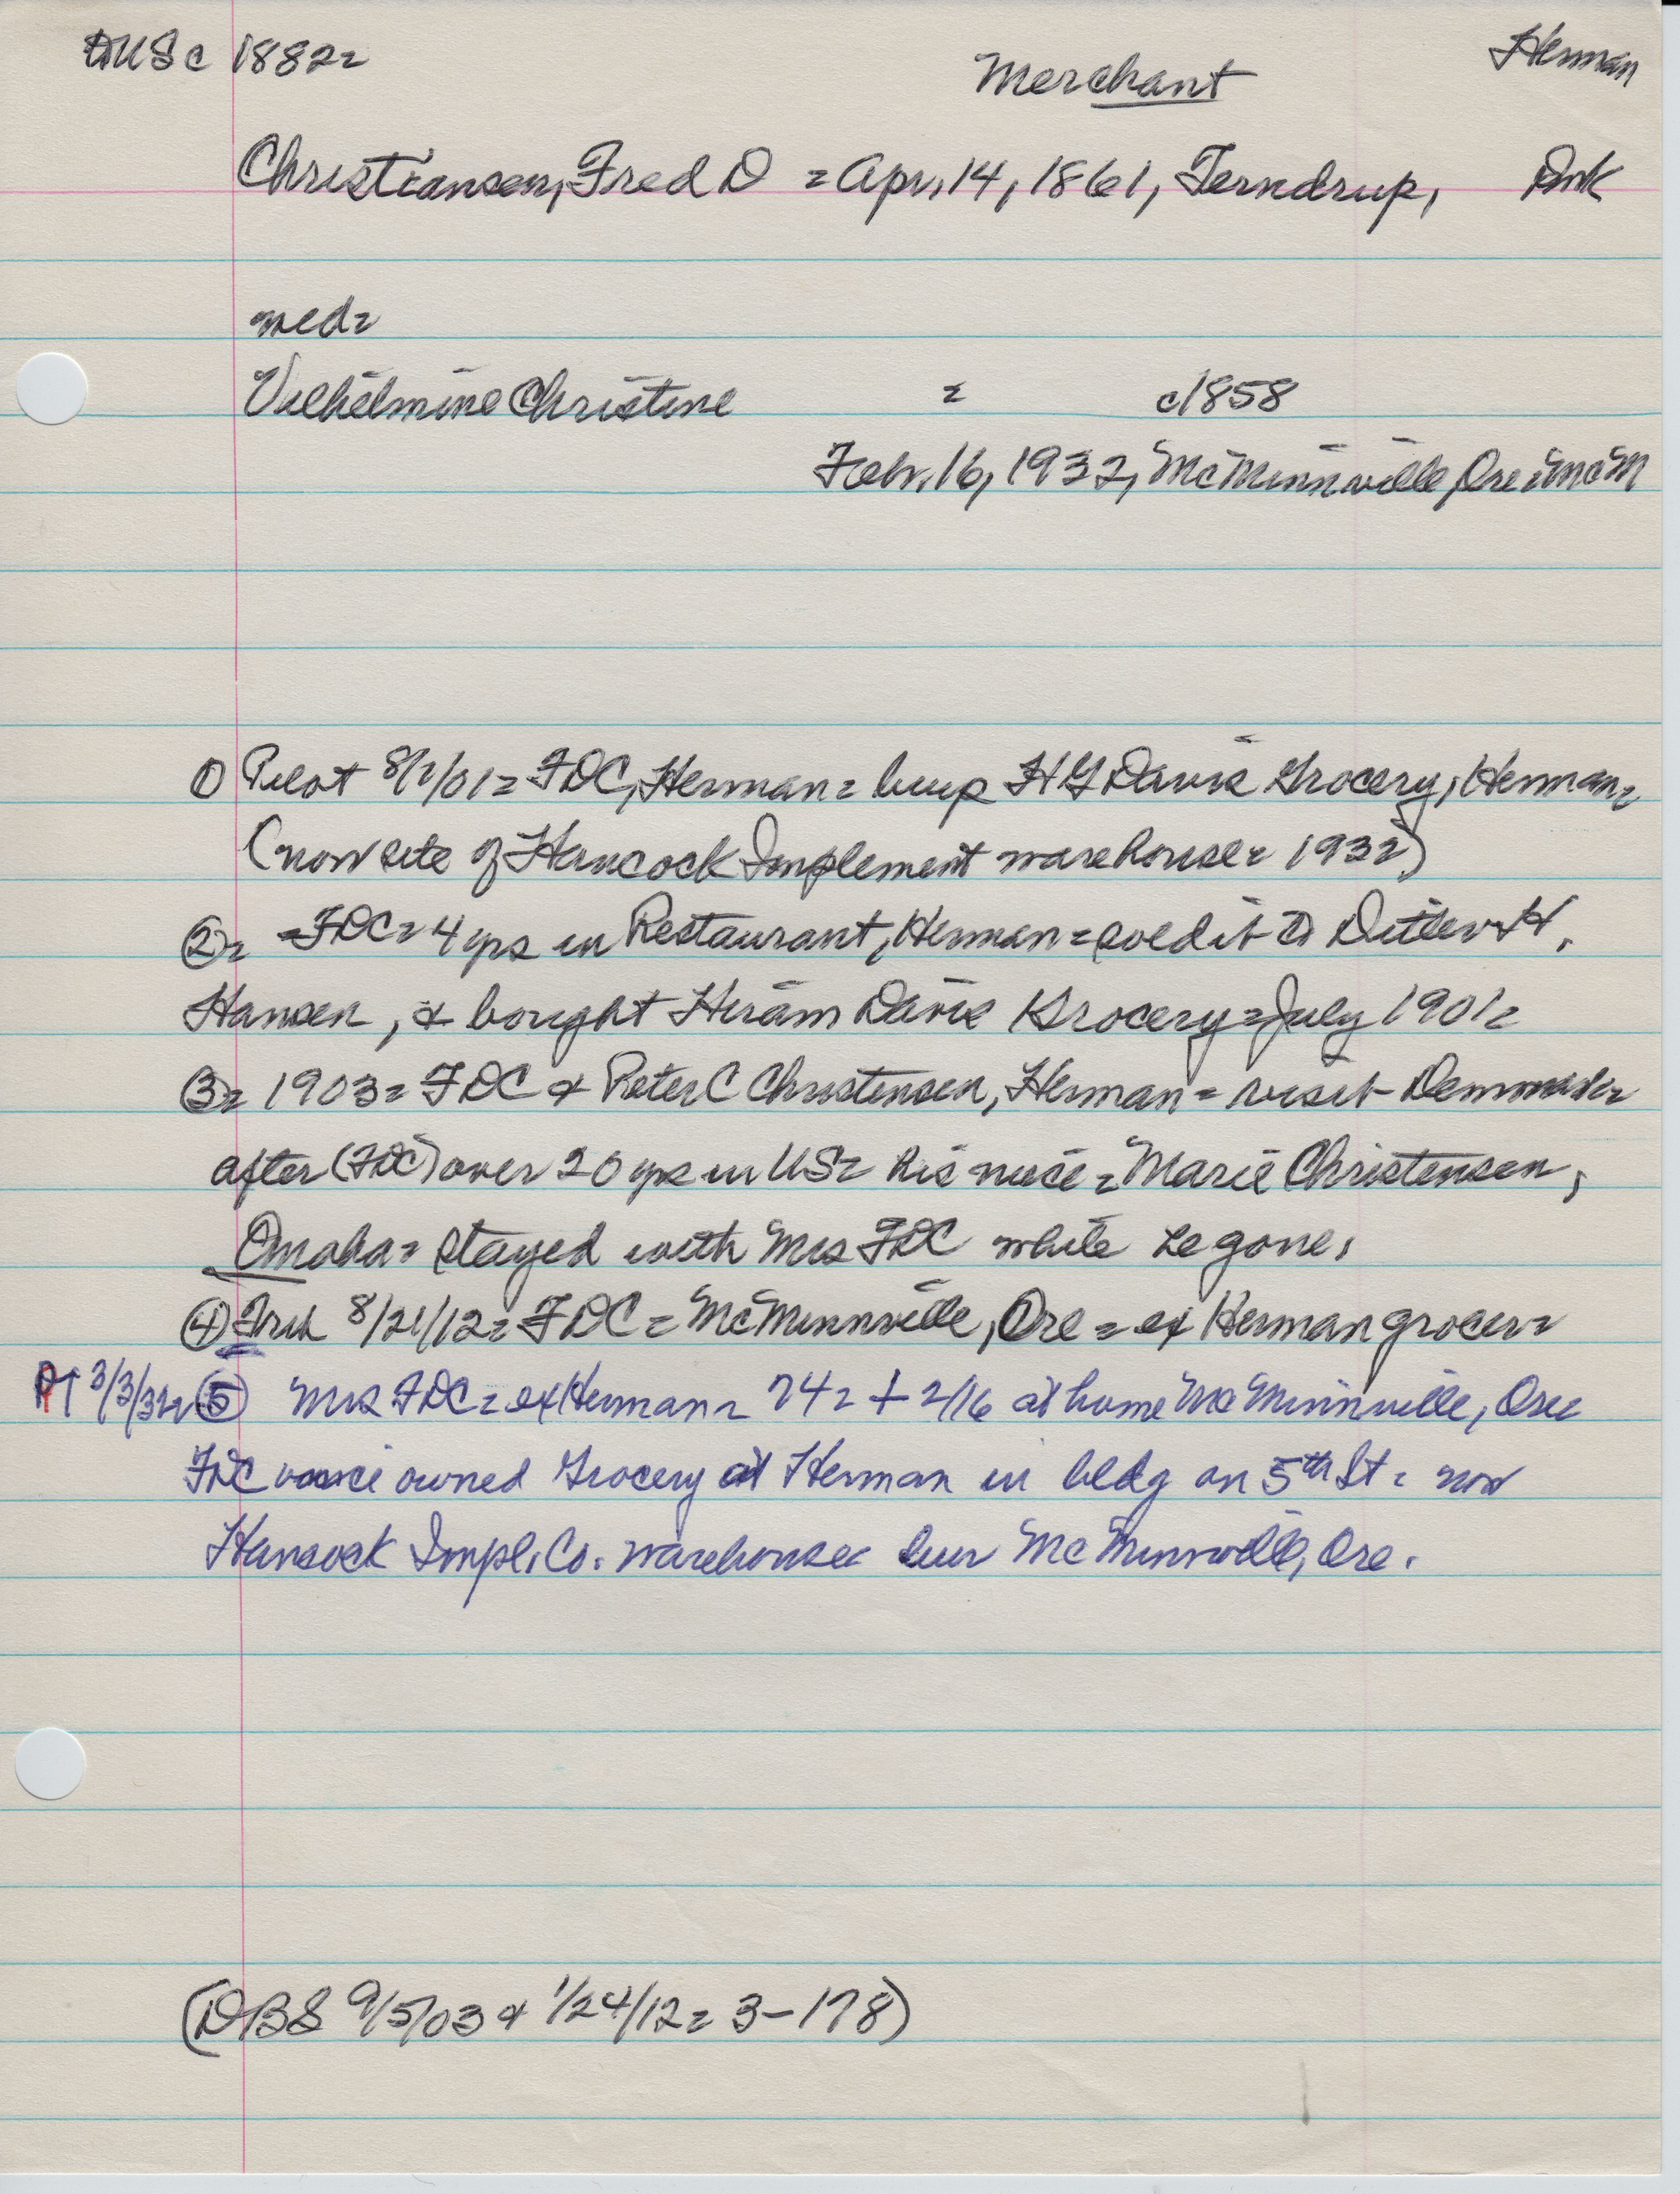 AUS c 1882=
Merchant
Herman
Christiansen, Fred D = Apr. 14, 1861, Terndrup, Dnk
med=
Vilhelmine Christine = c1858
Febr. 16, 1932, McMinnville, Ore = McM
① Pilot 8/1/01= FDC, Herman= buys HG Davis Grocery, Herman=
(now site of Hancock Implement warehouse= 1932)
②= FDC= 4 yrs in Restaurant, Herman= sold it to Detlev H.
Hansen, & bought Hiram Davis Grocery= July 1901=
③= 1903= FDC & Peter C Christensen, Herman= visit Denmark=
after (FDC) over 20 yrs in US= his niece= Marie Christensen,
Omaha= stayed with Mrs FDC while he gone.
④ 8/21/12= FDC= McMinnville, Ore= ex Herman grocer=
PT 3/3/32= ⑤ Mrs FDC= ex Herman= 74= + 2/16 at home McMinnville, Ore
FDC owned Grocery at Herman in bldg on 5th St= now
Hancock Impl. Co. warehouse= bur McMinnville, Ore.
(DBS 9/5/03 & 1/24/12= 3-178)